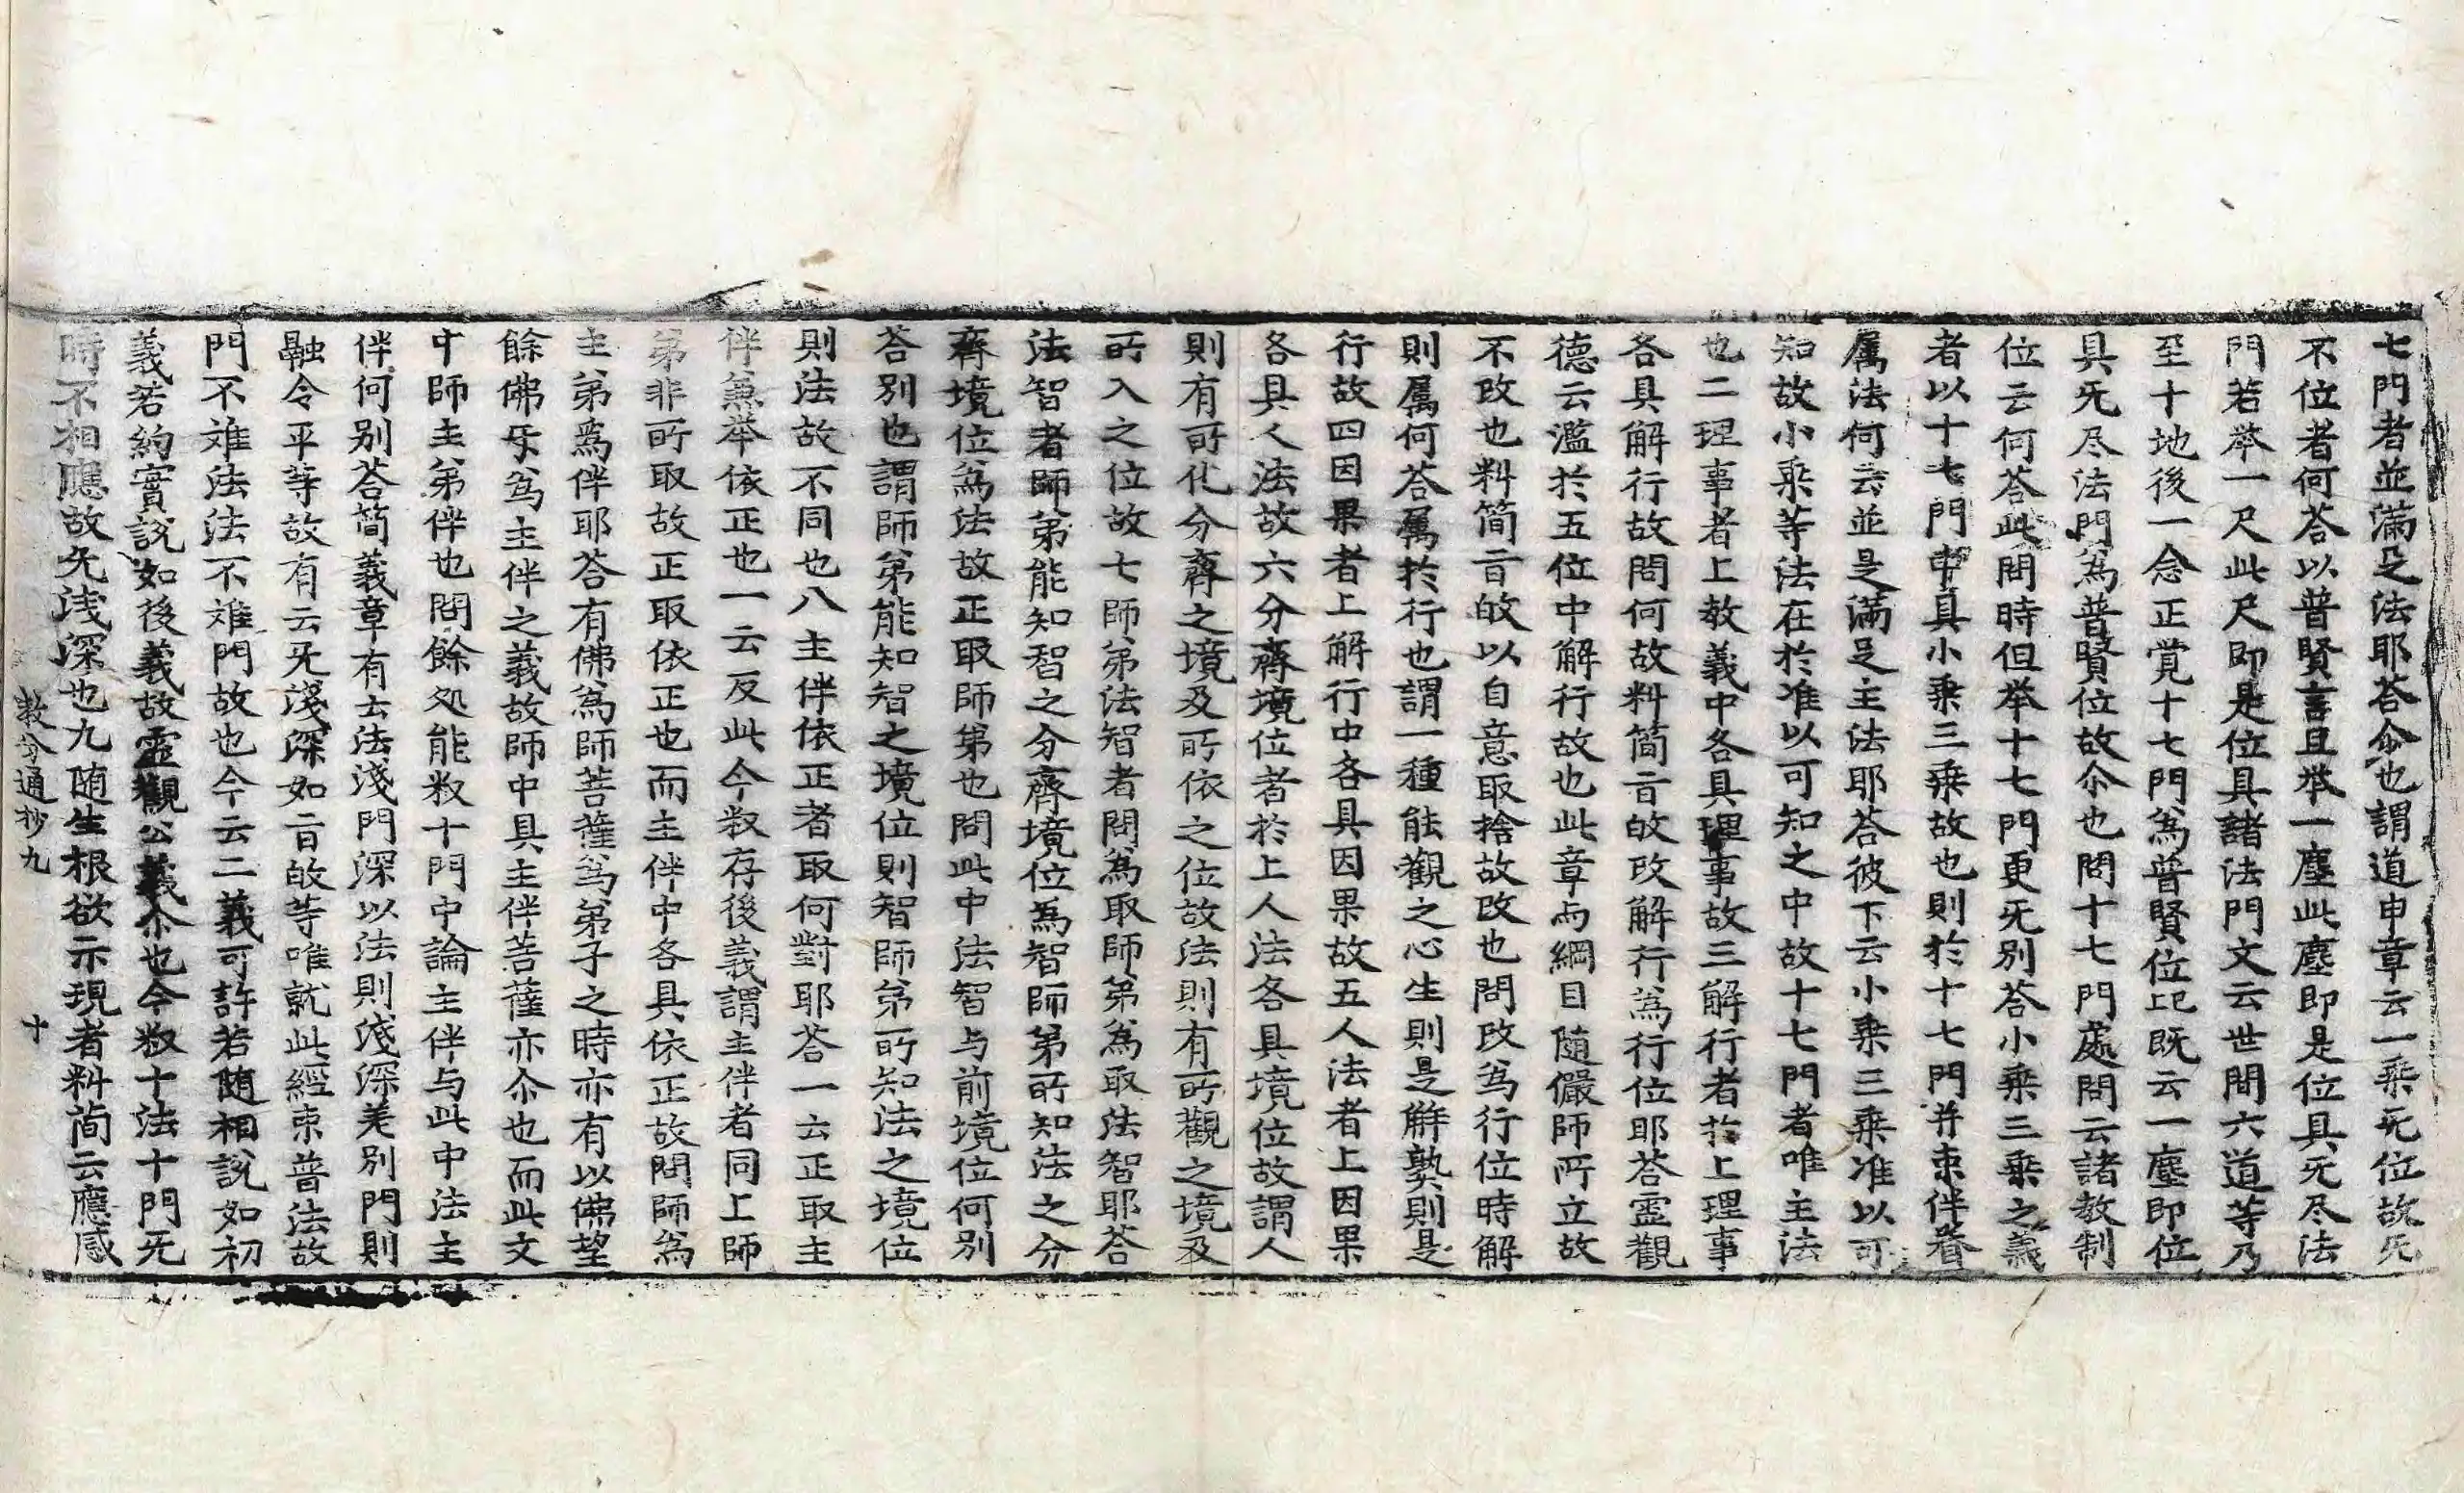 七門者並滿足法耶荅尒也謂道申章云一乘旡位故旡
不位者何荅以普賢言且举一塵此塵即是位具旡尽法
門若举一尺此尺即是位具諸法門文云世間六道等乃
至十地後一念正覚十七門為普賢位記既云一塵即位
具旡尽法門為普賢位故尒也問十七門處問云諸教制
位云何荅此問時但举十七門更旡別荅小乘三乘之義
者以十七門中具小乘三乘故也則於十七門并束伴眷
属法何云並是滿足主法耶荅彼下云小乘三乘准以可
知故小乘等法在於准以可知之中故十七門者唯主法
也二理事者上教義中各具理事故三解行者於上理事
各具解行故問何故料简音的改解行為行位耶荅霊觀
德云濫於五位中解行故也此章与綱目随儼師所立故
不改也料简音的以自意取捨故改也問改為行位時解
則属何荅属於行也謂一種能觀之心生則是解熟則是
行故四因果者上解行中各具因果故五人法者上因果
各具人法故六分齊境位者於上人法各具境位故謂人
則有所化分齊之境及所依之位故法則有所觀之境及
所入之位故七師弟法智者問為取師弟為取法智耶荅
法智者師弟能知智之分齊境位為智師弟所知法之分
齊境位為法故正取師弟也問此中法智与前境位何別
荅別也謂師弟能知智之境位則智師弟所知法之境位
則法故不同也八主伴依正者取何對耶荅一云正取主
伴兼举依正也一云反此今叙存後義謂主伴者同上師
弟非所取故正取依正也而主伴中各具依正故問師為
主弟為伴耶荅有佛為師菩薩為弟子之時亦有以佛望
餘佛㸦為主伴之義故師中具主伴菩薩亦尒也而此文
中師主弟伴也問餘処能叙十門中論主伴与此中法主
伴何别荅简義章有云法淺門深以法則淺深差别門則
融令平等故有云旡淺深如音的等唯就此經束普法故
門不难法法不难門故也今云二義可許若随相說如初
義若約實說如後義故霊觀公義尒也今叙十法十門旡
時不相應故旡浅深也九随生根欲示現者料简云應感
教分通抄九 十